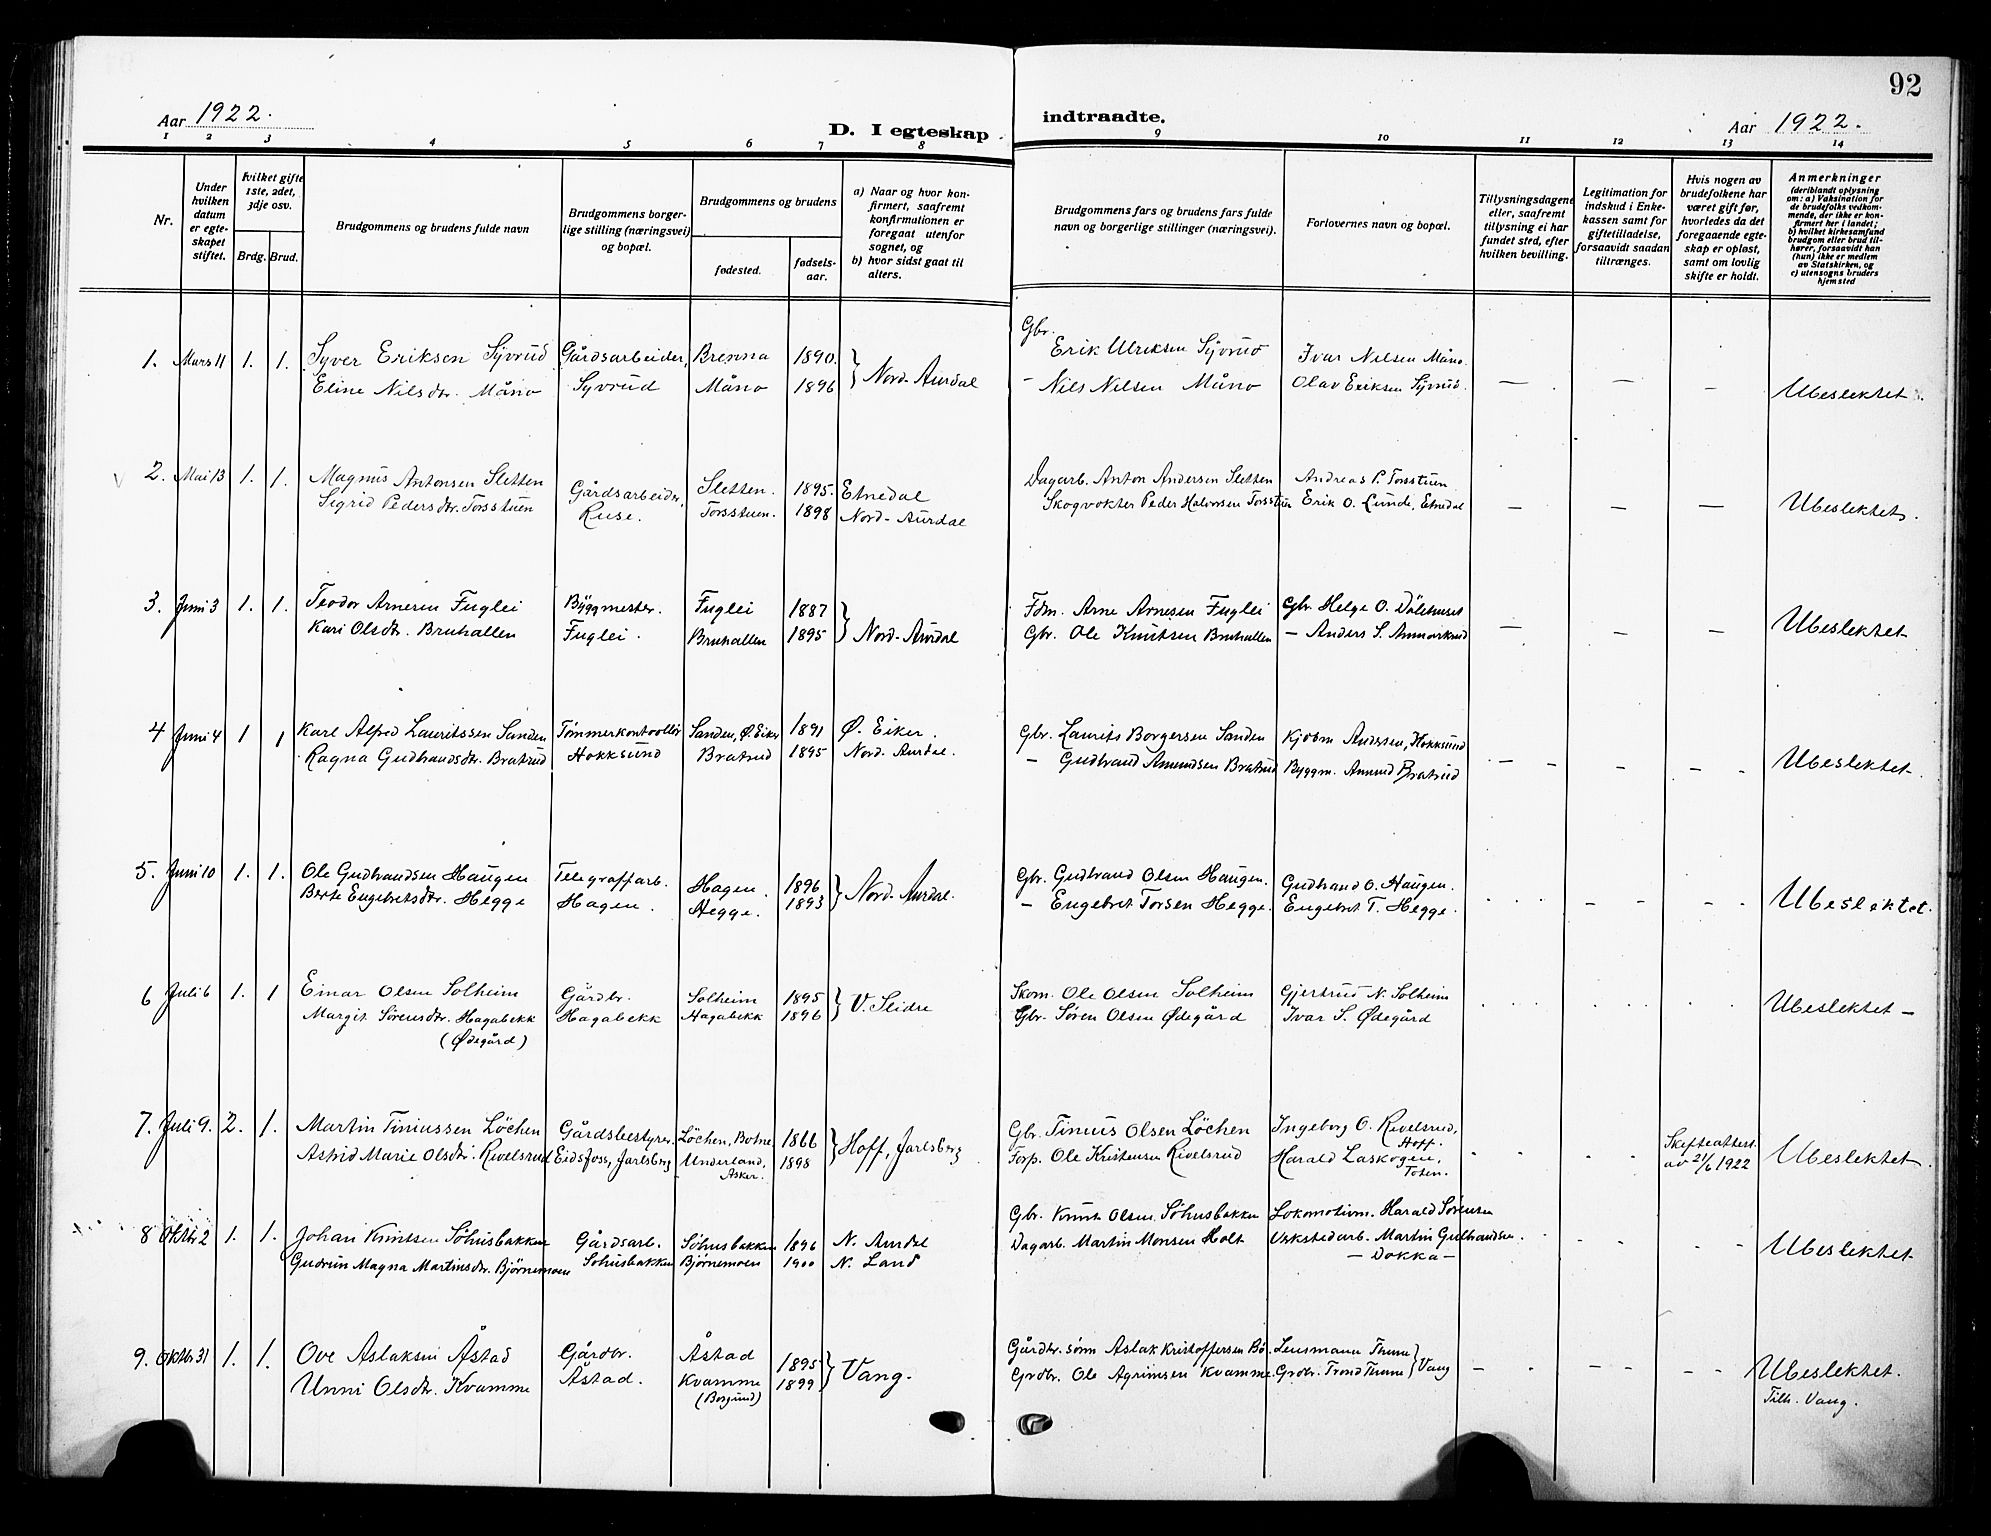 92
Aar 1922.
D. I egteskap indtraadte.
Aar 1922.
1 2 3 4 5 6 7 8 9 10 11 12 13 14
Nr.
Under hvilken datum er egteskapet stiftet.
hvilket gifte 1ste, 2det, 3dje osv.
Brdg. Brud.
Brudgommens og brudens fulde navn
Brudgommens borgerlige stilling (næringsvei) og bopæl.
Brudgommens og brudens
fødested.
fødselsaar.
a) Naar og hvor konfirmert, saafremt konfirmationen er foregaat utenfor sognet, og
b) hvor sidst gaat til alters.
Brudgommens fars og brudens fars fulde navn og borgerlige stillinger (næringsvei).
Forlovernes navn og bopæl.
Tillysningsdagene eller, saafremt tillysning ei har fundet sted, efter hvilken bevilling.
Legitimation for indskud i Enkekassen samt for giftetilladelse, forsaavidt saadan tiltrænges.
Hvis nogen av brudefolkene har været gift før, hvorledes da det foregaaende egteskap er opløst, samt om lovlig skifte er holdt.
Anmerkninger
(deriblandt oplysning om: a) Vaksination for de brudefolks vedkommende, der ikke er konfirmert her i landet; b) hvilket kirkesamfund brudgom eller brud tilhører, forsaavidt han (hun) ikke er medlem av Statskirken, og c) utensogns bruders hjemsted
1. Mars 11 1. 1. Syver Eriksen Syvrud Gårdsarbeider, Brenna 1890. } Nord-Aurdal Gbr. Erik Ulriksen Syvrud Ivar Nilsen Måno
Eline Nilsdtr. Måno Syvrud Måno 1896 – Nils Nilsen Måno Olav Eriksen Syvrud. — — — Ubeslektet.
2. Mai 13 1. 1. Magnus Antonsen Sletten Gårdsarbeider, Sletten. 1895. Etnedal Dagarb. Anton Andersen Sletten Andreas P. Torsstuen
Sigrid Pedersdtr. Torsstuen Ruse. Torsstuen. 1898 Nord-Aurdal Skogvokter Peder Halvorsen Torsstuen Erik O. Lunde, Etnedal — — — Ubeslektet.
3. Juni 3 1. 1. Teodor Arnesen Fuglei Byggmester. Fuglei 1887 } Nord-Aurdal Fdm. Arne Arnesen Fuglei Gbr. Helge O. Dålehuset
Kari Olsdtr. Bruhallen Fuglei. Bruhallen 1895 Gbr. Ole Knutsen Bruhallen – Anders S. — — — Ubeslektet
4 Juni 4 1 1 Karl Alfred Lauritssen Sanden Tømmerkontrollør Sanden, Ø. Eiker 1891 Ø. Eiker. Gbr. Laurits Borgersen Sanden Kjøbm Andersen, Hokksund
Ragna Gudbrandsdtr. Bratrud Hokksund Bratrud 1895 Nord-Aurdal. – Gudbrand Amundsen Bratrud Byggm. Amund Bratrud — — — Ubeslektet.
5. Juni 10 1. 1. Ole Gudbrandsen Haugen Telegrafarb. Hagen. 1896 } Nord-Aurdal. Gbr. Gudbrand Olsen Haugen. Gudbrand O. Haugen.
Berte Engebretsdtr. Hegge Hagen. Hegge. 1893 – Engebret Torsen Hegge. Engebret T. Hegge. Ubeslektet.
6 Juli 6 1. 1 Einar Olsen Solheim Gårdbr. Solheim 1895 } V. Slidre Skom. Ole Olsen Solheim Gjertrud N. Solheim
Margit Sørensdtr. Hagabekk Hagabekk Hagabekk 1896 Gbr. Søren Olsen Ødegård Ivar S. Ødegård Ubeslektet –
(Ødegård)
7. Juli 9. 2. 1. Martin Tiniussen Löchen Gårdsbestyrer, Löchen, Botne 1866 } Hoff, Jarlsberg Gbr. Tinius Olsen Löchen Ingeborg O. Rivelsrud, Hoff.
Astrid Marie Olsdtr. Rivelsrud Eidsfoss, Jarlsberg Underland, Asker. 1898 Torp. Ole Kristensen Rivelsrud Harald Laskogen, Toten. Skifteattest av 21/6 1922 Ubeslektet.
8 Oktbr 2 1. 1. Johan Knutsen Söhusbakken Gårdsarb. Söhusbakken 1896 N. Aurdal Gbr. Knut Olsen Söhusbakken Lokomotivm. Harald Sørensen
Gudrun Magna Martinsdtr. Bjørnemoen Söhusbakken Bjørnemoen 1900 N. Land Dagarb. Martin Monsen Holt Verkstedarb. Martin Gulbrandsen
– Dokka – Ubeslektet
9. Oktbr 31 1. 1. Ove Aslaksen Åstad Gårdbr. Åstad 1895 } Vang. Gårdbr. sønn Aslak Kristoffersen Bö. Lensmann Thune } Vang
Unni Olsdtr. Kvamme Åstad. Kvamme 1899 Grdbr. Ole Agrimsen Kvamme. Grdbr. Trond Thune Ubeslektet.
(Borgund) Tilh. Vang.